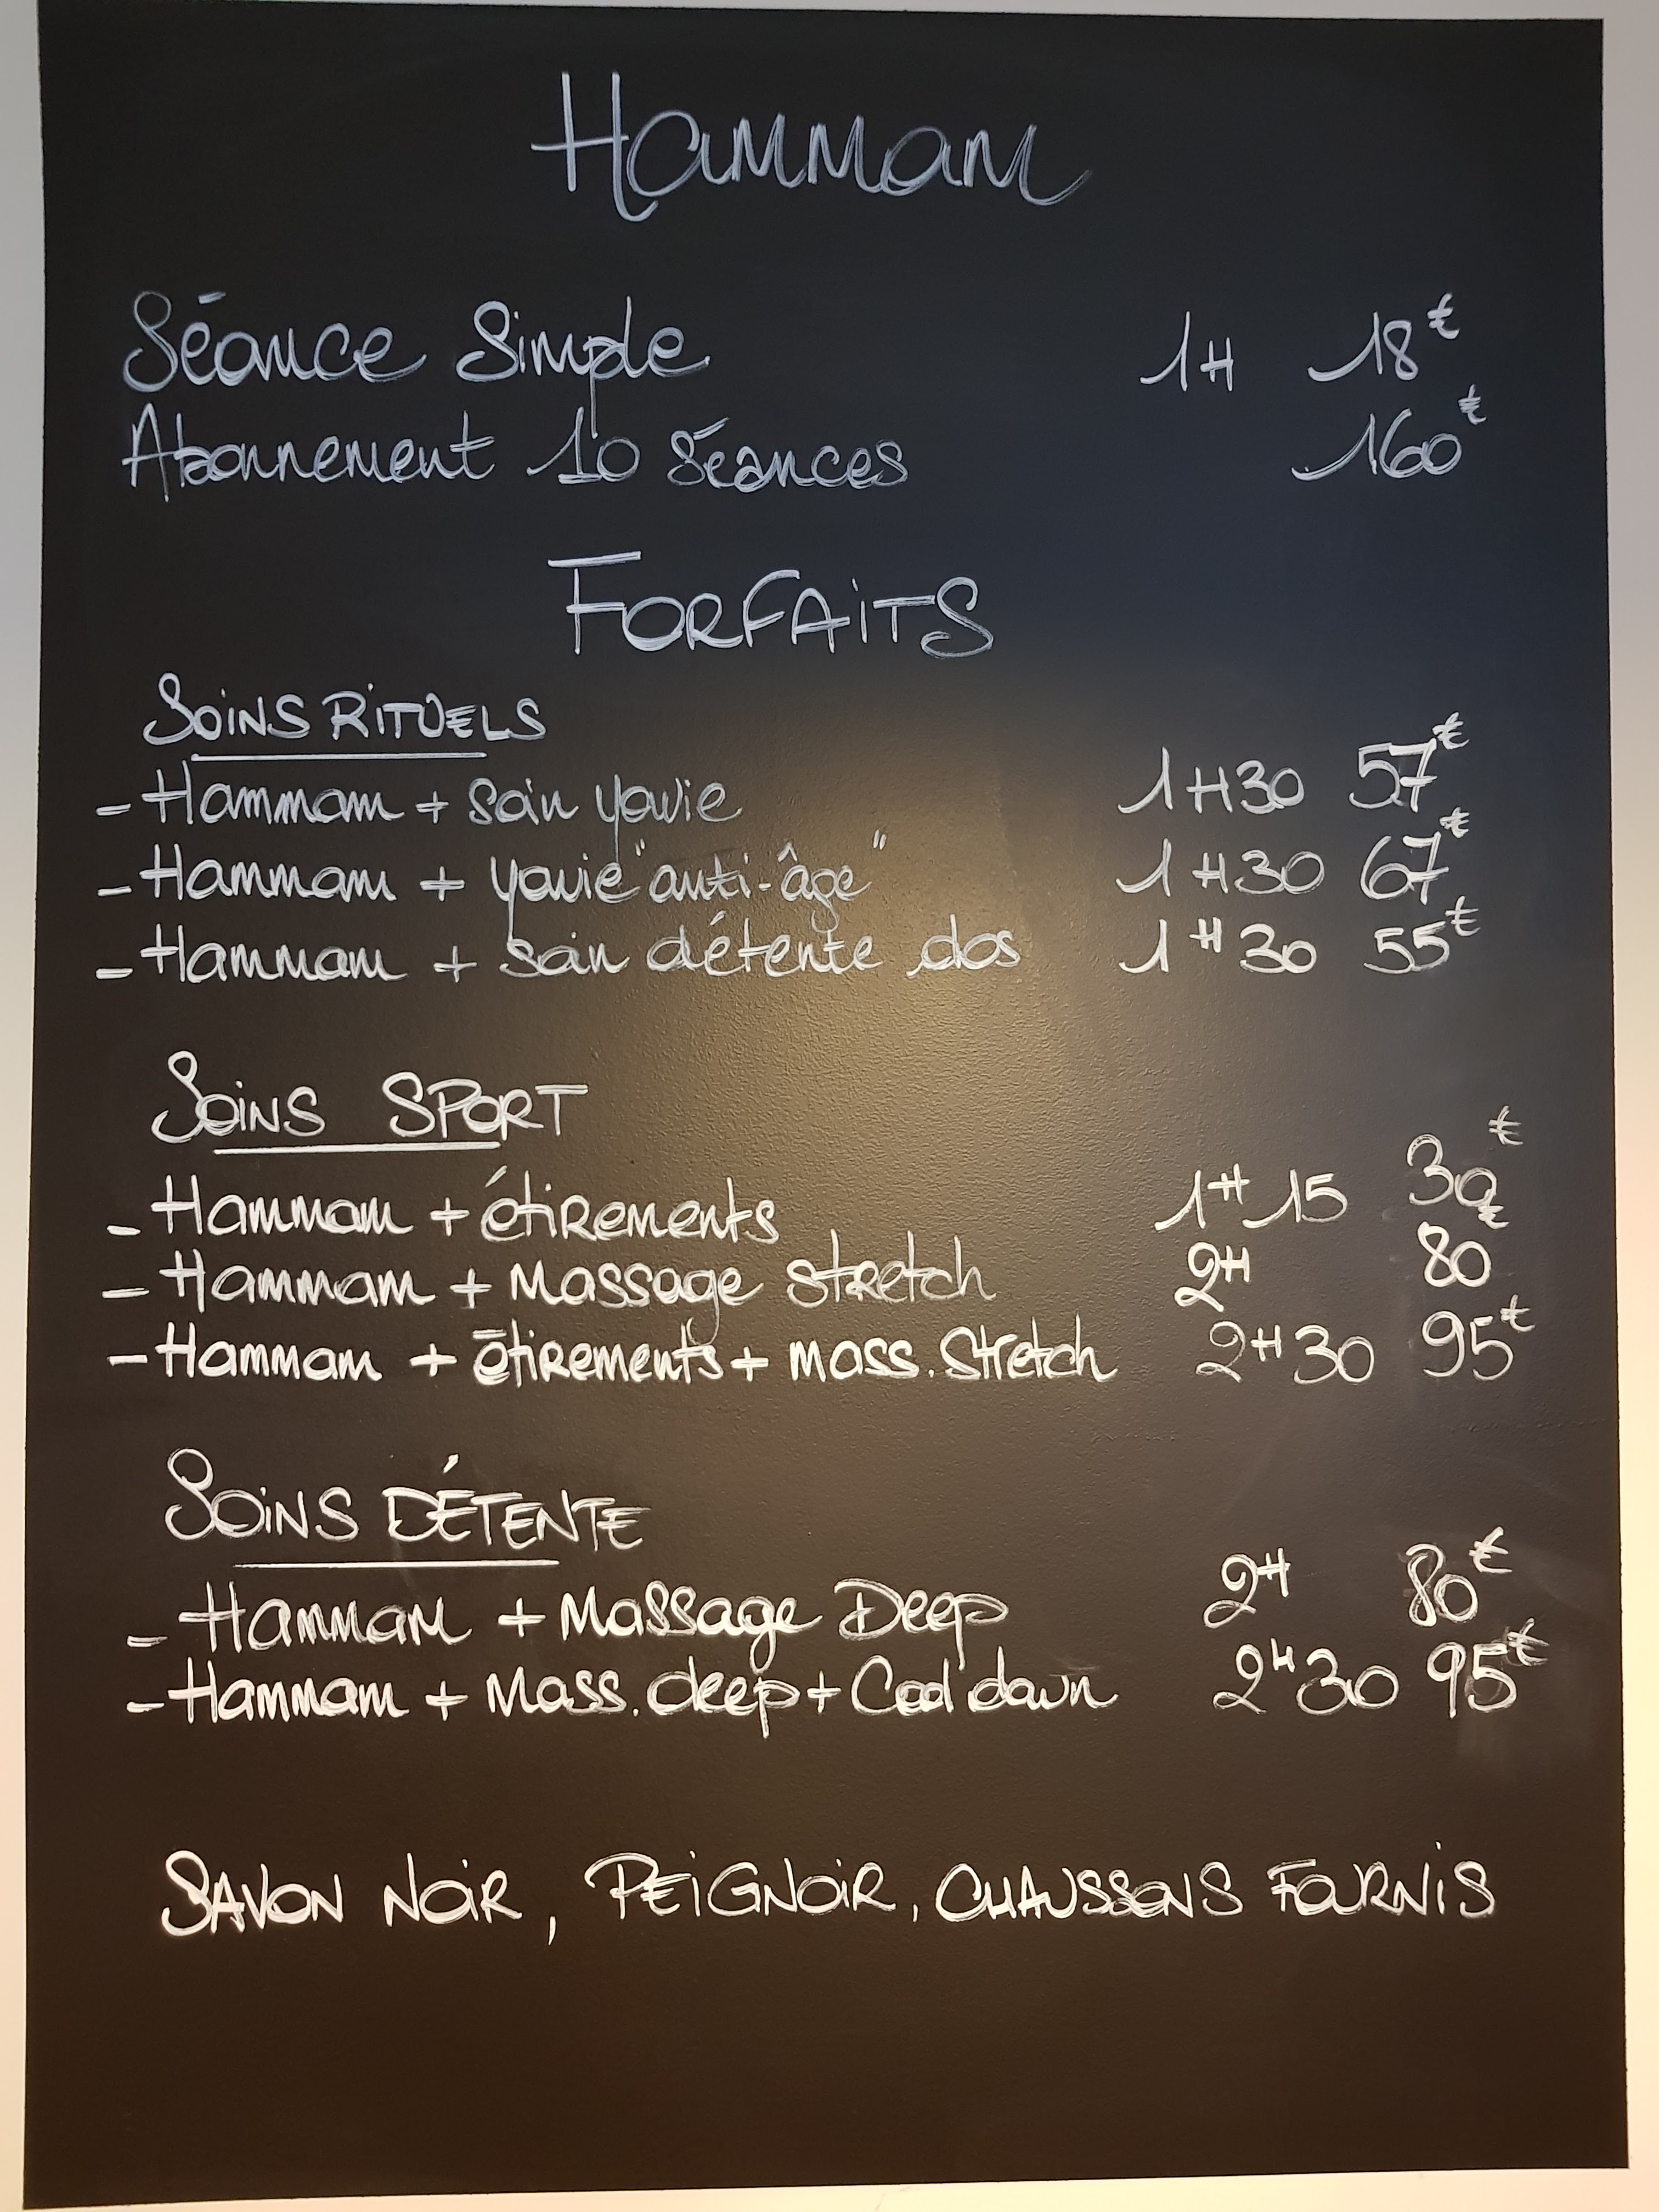 Hammam
Séance Simple 1H 18€
Abonnement 10 séances 160€
FORFAITS
SOINS RITUELS
- Hammam + soin yovie 1H30 57€
- Hammam + yovie "anti-âge" 1H30 67€
- Hammam + soin détente dos 1H30 55€
SOINS SPORT
- Hammam + étirements 1H15 30€
- Hammam + Massage stretch 2H 80€
- Hammam + étirements + mass. Stretch 2H30 95€
SOINS DÉTENTE
- Hammam + Massage Deep 2H 80€
- Hammam + Mass. deep + Cool down 2H30 95€
SAVON NOIR, PEIGNOIR, CHAUSSONS FOURNIS